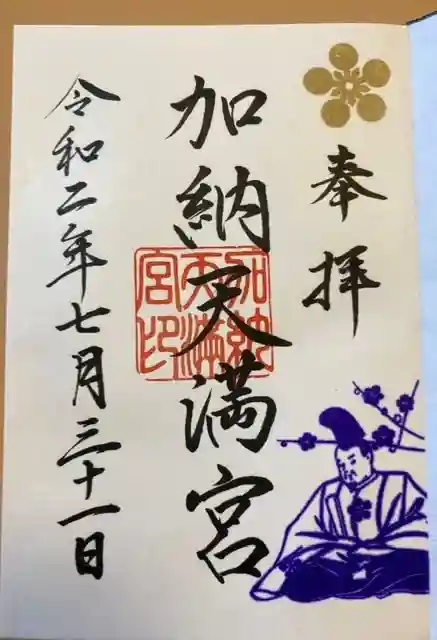 奉拝
加納天満宮
加納天満宮印
令和二年七月三十一日